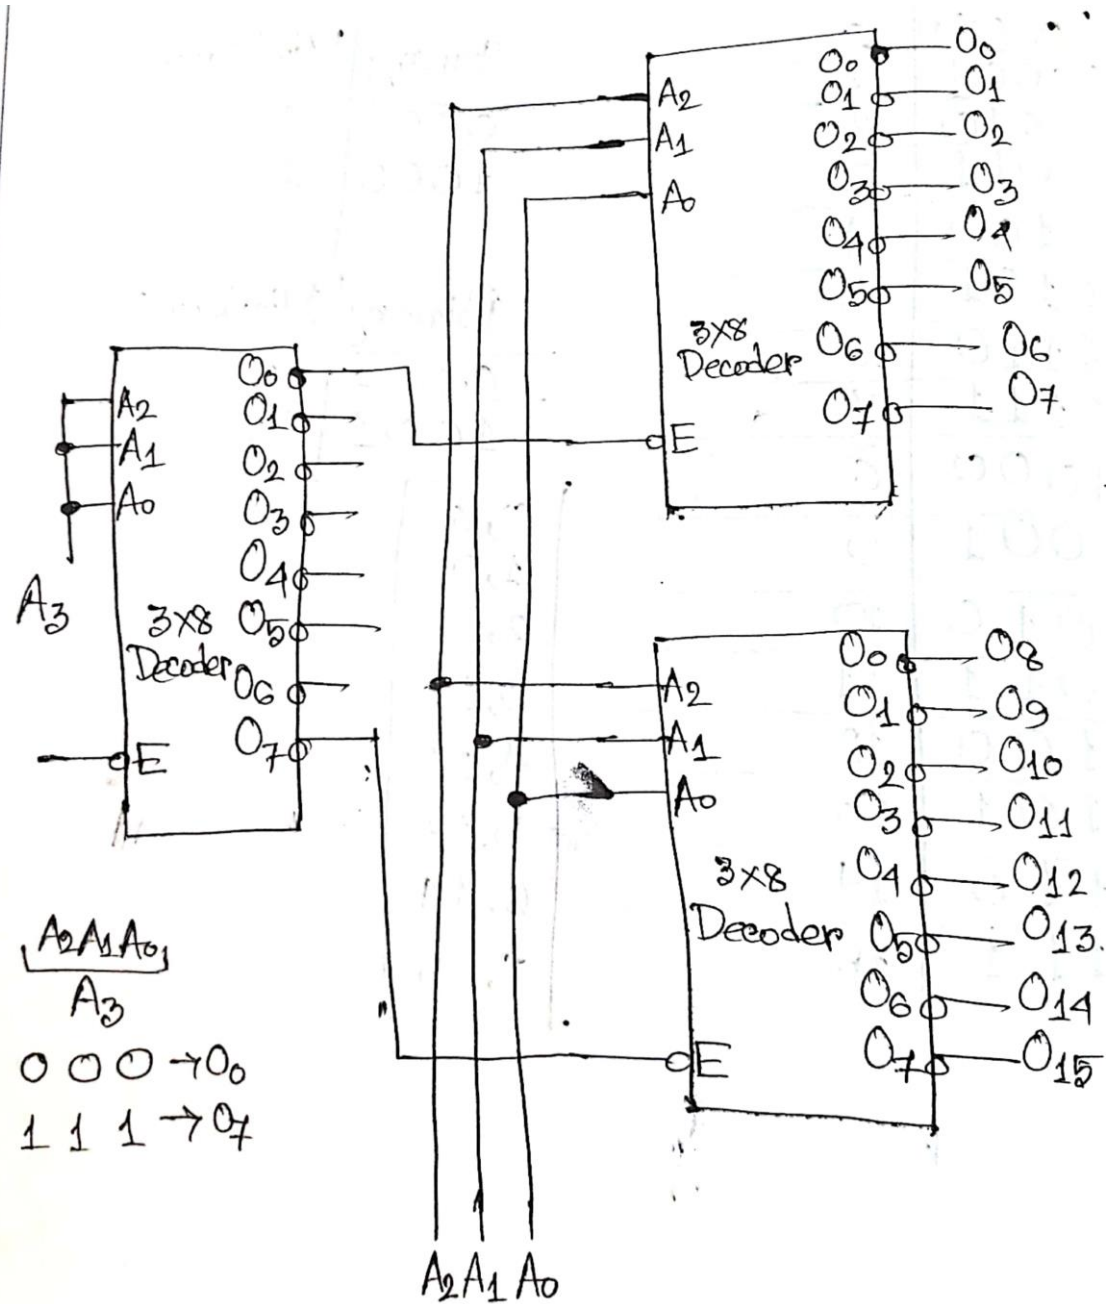 A2
A1
A0
E
3x8
Decoder
O0 O0
O1 O1
O2 O2
O3 O3
O4 O4
O5 O5
O6 O6
O7 O7
A2
A1
A0
A3
E
3x8
Decoder
O0
O1
O2
O3
O4
O5
O6
O7
A2
A1
A0
E
3x8
Decoder
O0 O8
O1 O9
O2 O10
O3 O11
O4 O12
O5 O13
O6 O14
O7 O15
A2A1A0
A3
0 0 0 → O0
1 1 1 → O7
A2 A1 A0